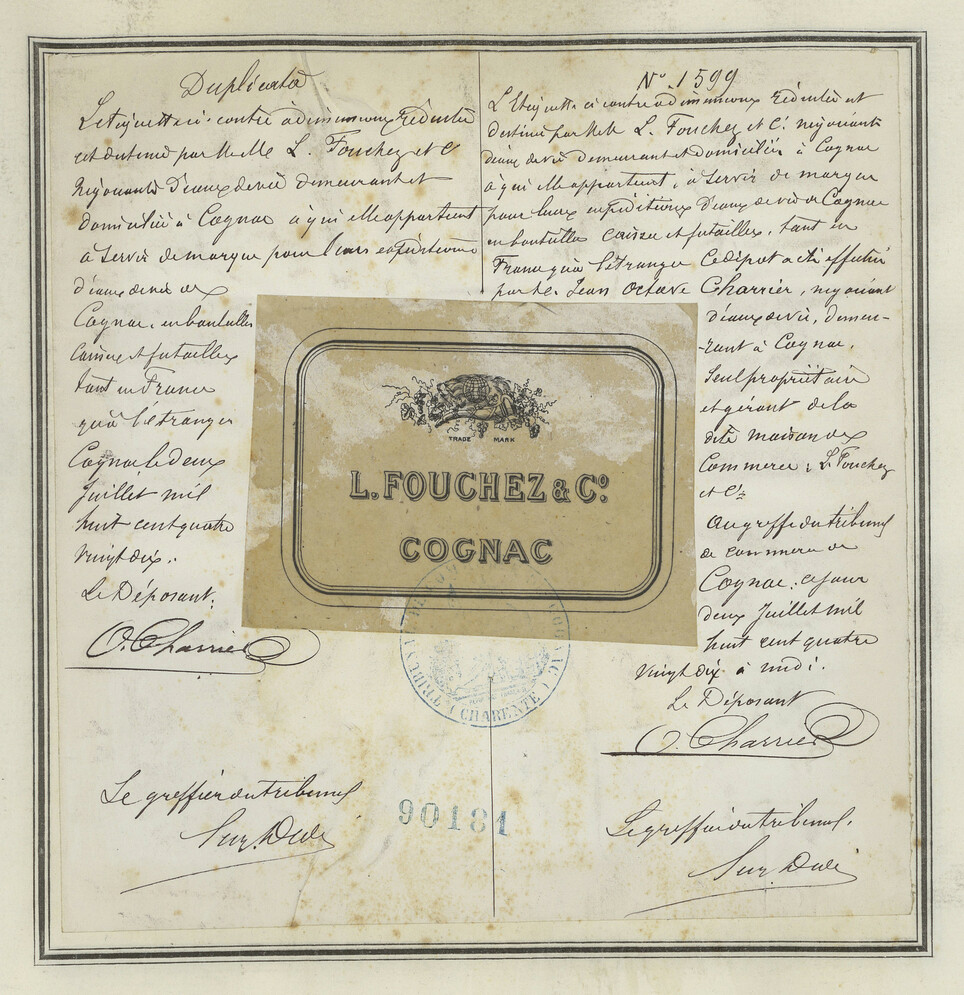 Duplicata
L'étiquette ci-contre ad in en coux Exécutée
et destinée par M. M. L. Fouchez et Cie
négociants d'eaux de vie demeurant et
domiciliés à Cognac à qui elle appartient
à servir de marque pour leurs expéditions
d'eaux de vie de
Cognac, en bouteilles
caisses et futailles
tant en France
qu'à l'étranger
Cognac le deux
Juillet mil
huit cent quatre
vingt dix.
Le Déposant:
O. Charrier
Le greffier du tribunal
No 1599
L'Etiquette ci contre Exécutée et
destinée par M. M. L. Fouchez et Cie négociants
d'eaux de vie demeurant et domiciliés à Cognac
à qui elle appartient, à servir de marque
pour leurs expéditions d'eaux de vie de Cognac
en bouteilles caisses et futailles, tant en
France qu'à l'étranger Ce dépot a été effectué
par M. Jean Octave Charrier, négociant
d'eaux de vie, demeu-
-rant à Cognac,
Seul propriétaire
et gérant de la
dite maison de
Commerce, L. Fouchez
et Cie
Au greffe du tribunal
de commerce de
Cognac: ce jour
deux Juillet mil
huit cent quatre
vingt dix à midi.
Le Déposant
O. Charrier
Le greffier du tribunal.
TRADE MARK
L. FOUCHEZ & Co.
COGNAC
TRIBUNAL COGNAC (CHARENTE)
90181